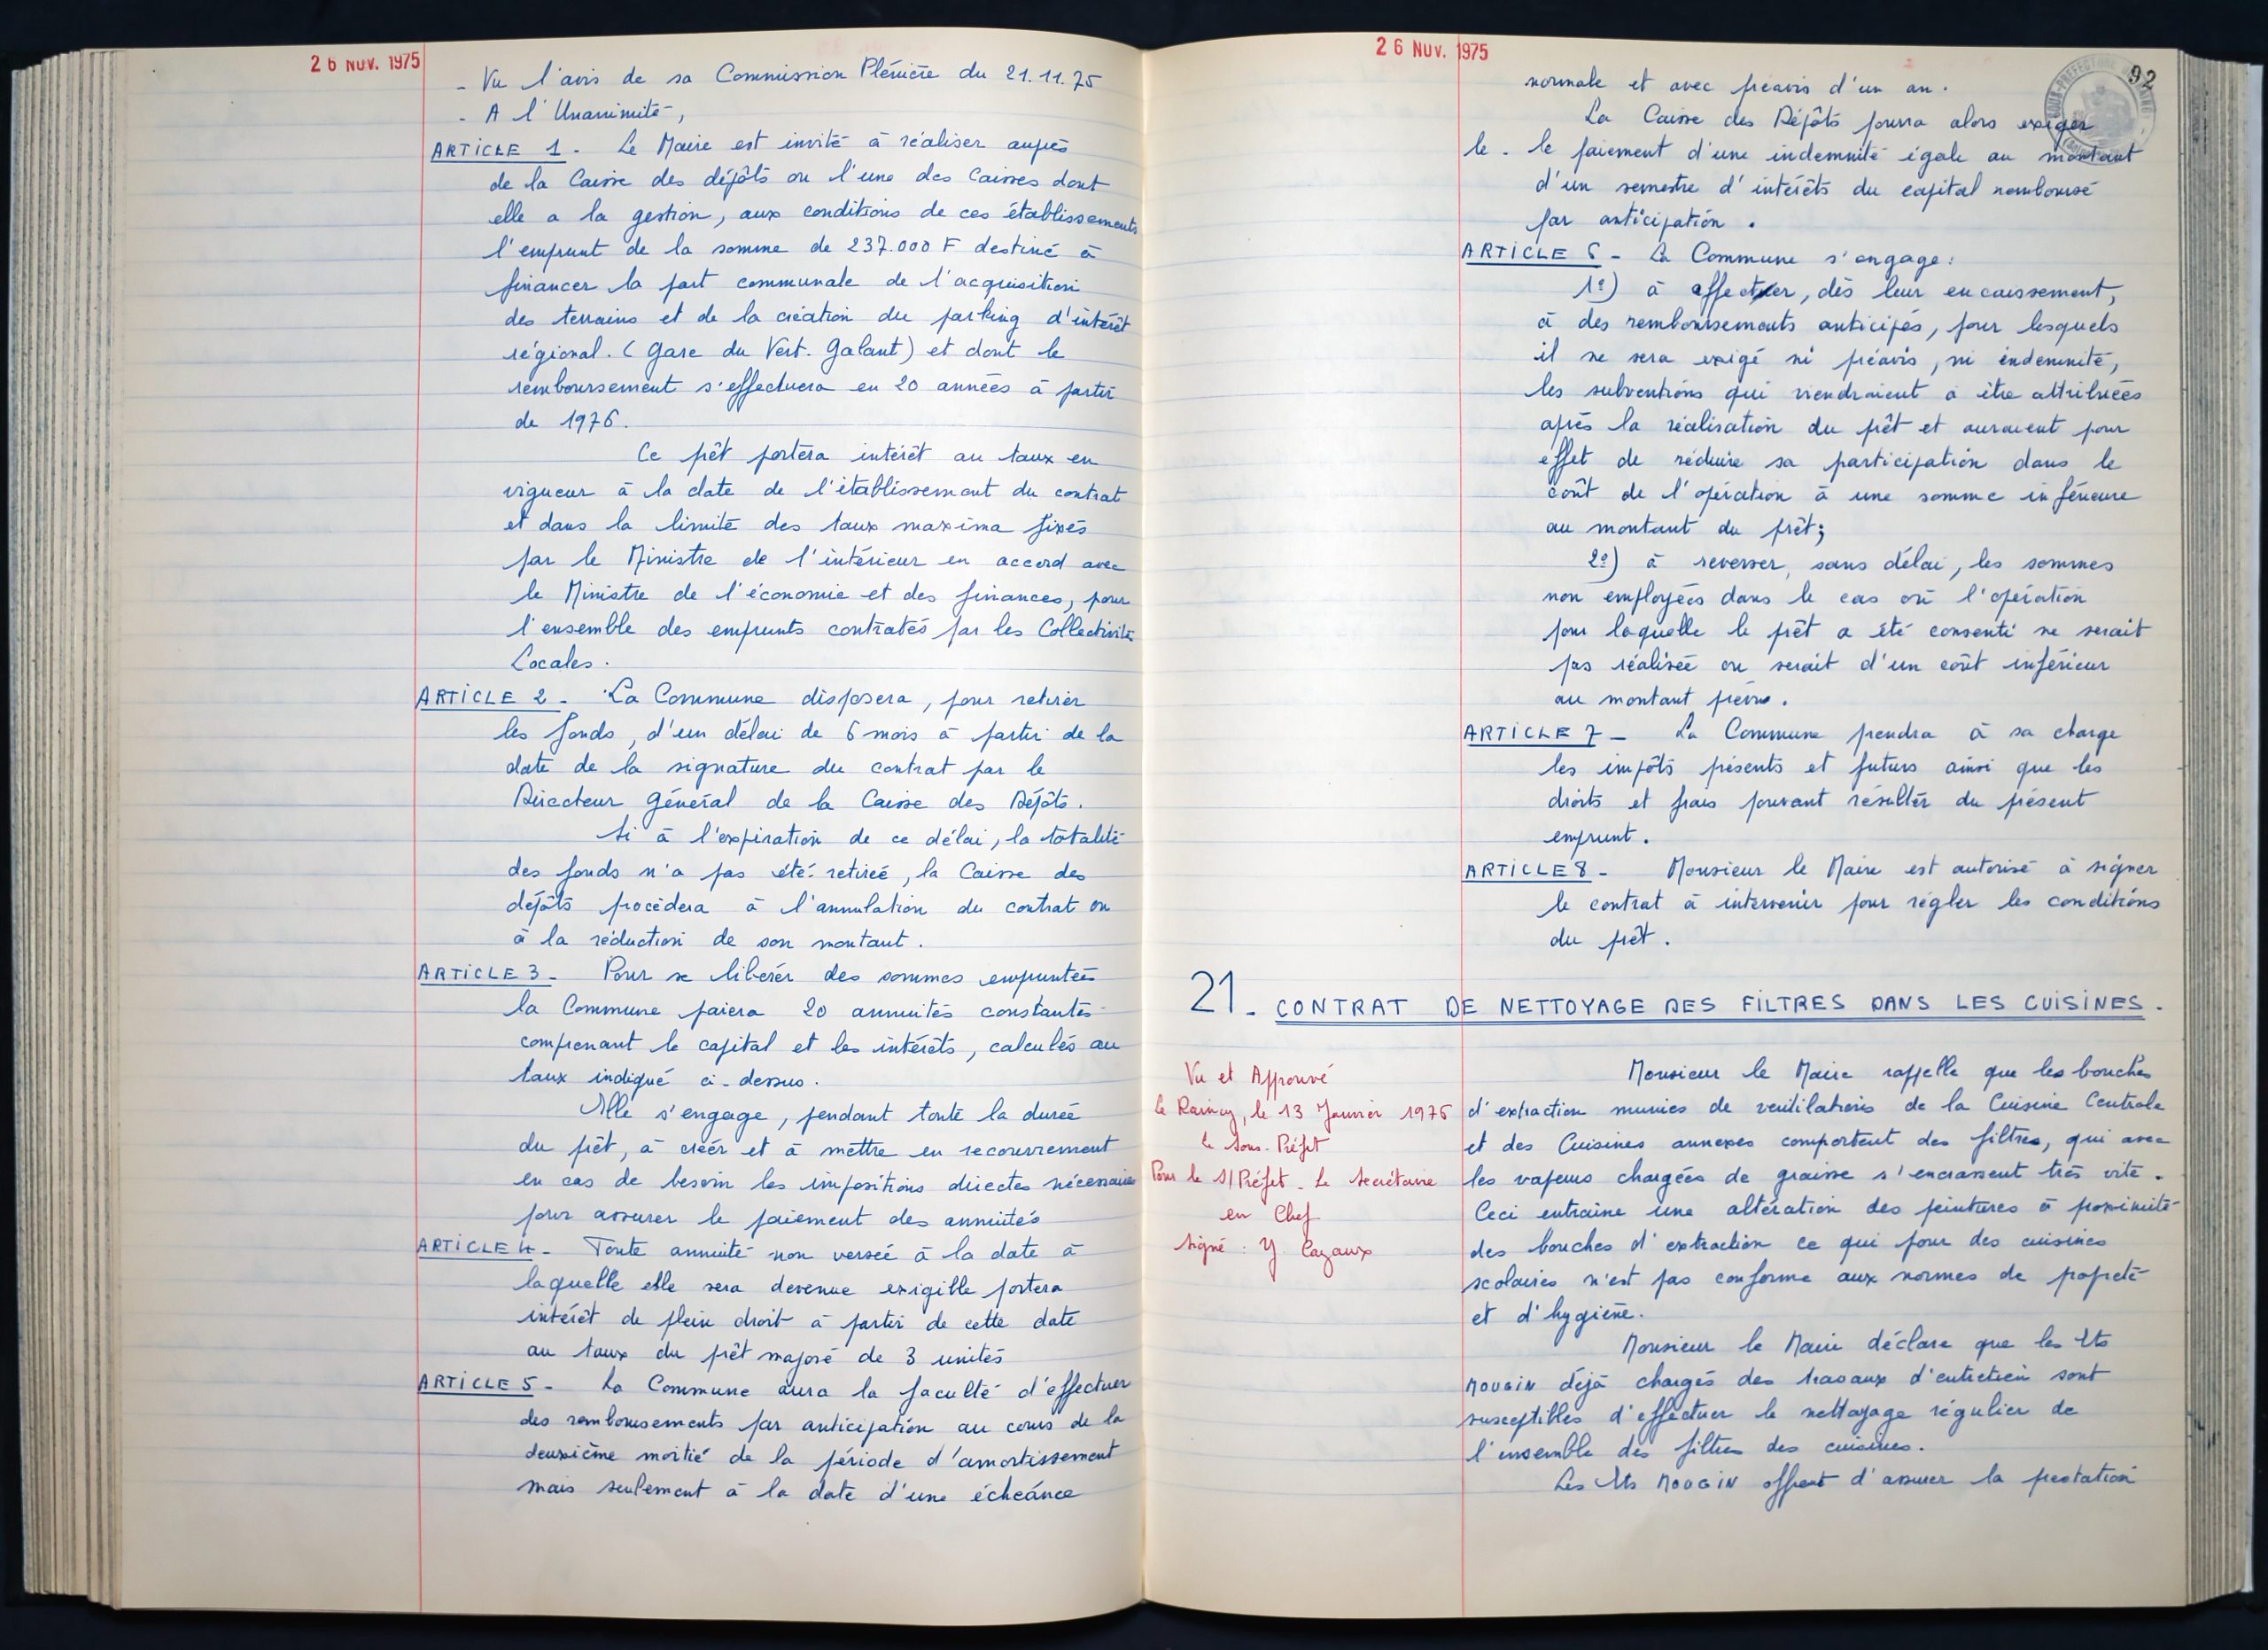 26 NOV. 1975
- Vu l'avis de sa Commission Plénière du 21.11.75
- A l'Unanimité,
ARTICLE 1 - Le Maire est invité à réaliser auprès
de la Caisse des dépôts ou l'une des Caisses dont
elle a la gestion, aux conditions de ces établissements
l'emprunt de la somme de 237.000 F destiné à
financer la part communale de l'acquisition
des terrains et de la création du parking d'intérêt
régional. (Gare du Vert. Galant) et dont le
remboursement s'effectuera en 20 années à partir
de 1976.
Ce prêt portera intérêt au taux en
vigueur à la date de l'établissement du contrat
et dans la limite des taux maxima fixés
par le Ministre de l'intérieur en accord avec
le Ministre de l'économie et des finances, pour
l'ensemble des emprunts contratés par les Collectivités
Locales.
ARTICLE 2 - La Commune disposera, pour retirer
les fonds, d'un délai de 6 mois à partir de la
date de la signature du contrat par le
Directeur Général de la Caisse des Dépôts.
Si à l'expiration de ce délai, la totalité
des fonds n'a pas été retirée, la Caisse des
dépôts procédera à l'annulation du contrat ou
à la réduction de son montant.
ARTICLE 3 - Pour se libérer des sommes empruntées
la Commune paiera 20 annuités constantes
comprenant le capital et les intérêts, calculés au
taux indiqué ci-dessus.
Elle s'engage, pendant toute la durée
du prêt, à créér et à mettre en recouvrement
en cas de besoin les impositions directes nécessaires
pour assurer le paiement des annuités
ARTICLE 4 - Toute annuité non versée à la date à
laquelle elle sera devenue exigible portera
intérêt de plein droit à partir de cette date
au taux du prêt majoré de 3 unités
ARTICLE 5 - La Commune aura la faculté d'effectuer
des remboursements par anticipation au cours de la
deuxième moitié de la période d'amortissement
mais seulement à la date d'une échéance
26 NOV. 1975
92
normale et avec préavis d'un an.
La Caisse des Dépôts pourra alors exiger
le - le paiement d'une indemnité égale au montant
d'un semestre d'intérêts du capital remboursé
par anticipation.
ARTICLE 6 - La Commune s'engage:
1º) à affecter, dès leur encaissement,
à des remboursements anticipés, pour lesquels
il ne sera exigé ni préavis, ni indemnité,
les subventions qui viendraient à être attribuées
après la réalisation du prêt et auraient pour
effet de réduire sa participation dans le
coût de l'opération à une somme inférieure
au montant du prêt;
2º) à reverser, sans délai, les sommes
non employées dans le cas où l'opération
pour laquelle le prêt a été consenti ne serait
pas réalisée ou serait d'un coût inférieur
au montant prévu.
ARTICLE 7 - La Commune prendra à sa charge
les impôts présents et futurs ainsi que les
droits et frais pouvant résulter du présent
emprunt.
ARTICLE 8 - Monsieur le Maire est autorisé à signer
le contrat à intervenir pour régler les conditions
du prêt.
21. CONTRAT DE NETTOYAGE DES FILTRES DANS LES CUISINES.
Vu et Approuvé
le Raincy, le 13 Janvier 1976
le Sous-Préfet
Pour le S/Préfet - Le Secrétaire
en Chef
signé : Y Cazaux
Monsieur le Maire rappelle que les bouches
d'extraction munies de ventilations de la Cuisine Centrale
et des Cuisines annexes comportent des filtres, qui avec
les vapeurs chargées de graisse s'encrassent très vite.
Ceci entraine une altération des peintures à proximité
des bouches d'extraction ce qui pour des cuisines
scolaires n'est pas conforme aux normes de propreté
et d'hygiène.
Monsieur le Maire déclare que les Ets
MOUGIN déjà chargés des travaux d'entretien sont
susceptibles d'effectuer le nettoyage régulier de
l'ensemble des filtres des cuisines.
Les Ets MOUGIN offrent d'assurer la prestation